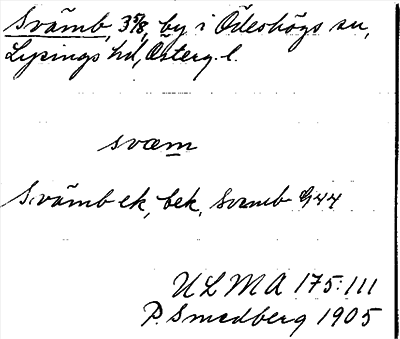 Svämb, 3 5/8, by i Ödeshögs sn,
Lysings hd, Österg. l.
svæm
Svämb ek, bek, Svemb G 44
ULMA 175:111
P. Smedberg 1905